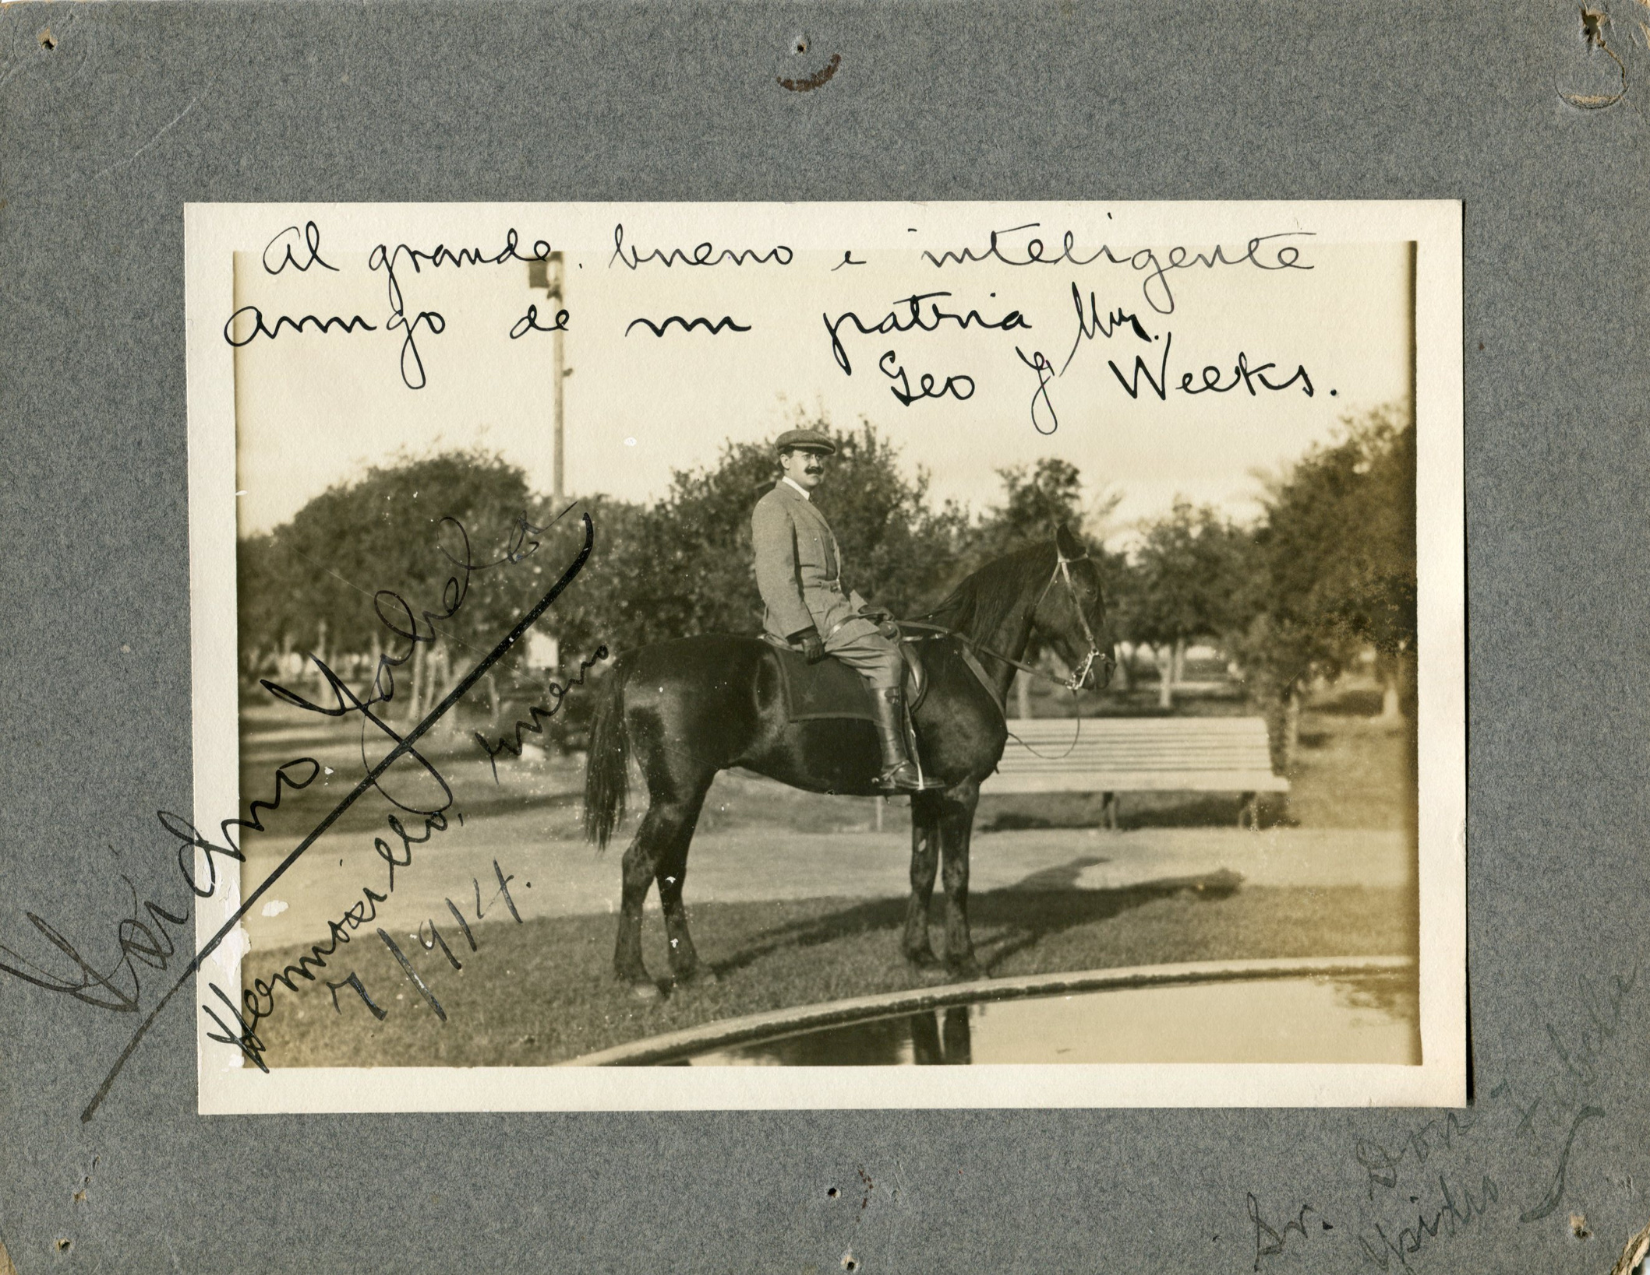 Al grande, bueno e inteligente
amigo de mi patria Mr.
Geo J Weeks.
Ysidro Fabela
Hermosillo, enero
7/914.
Sr. Don
Ysidro Fabela